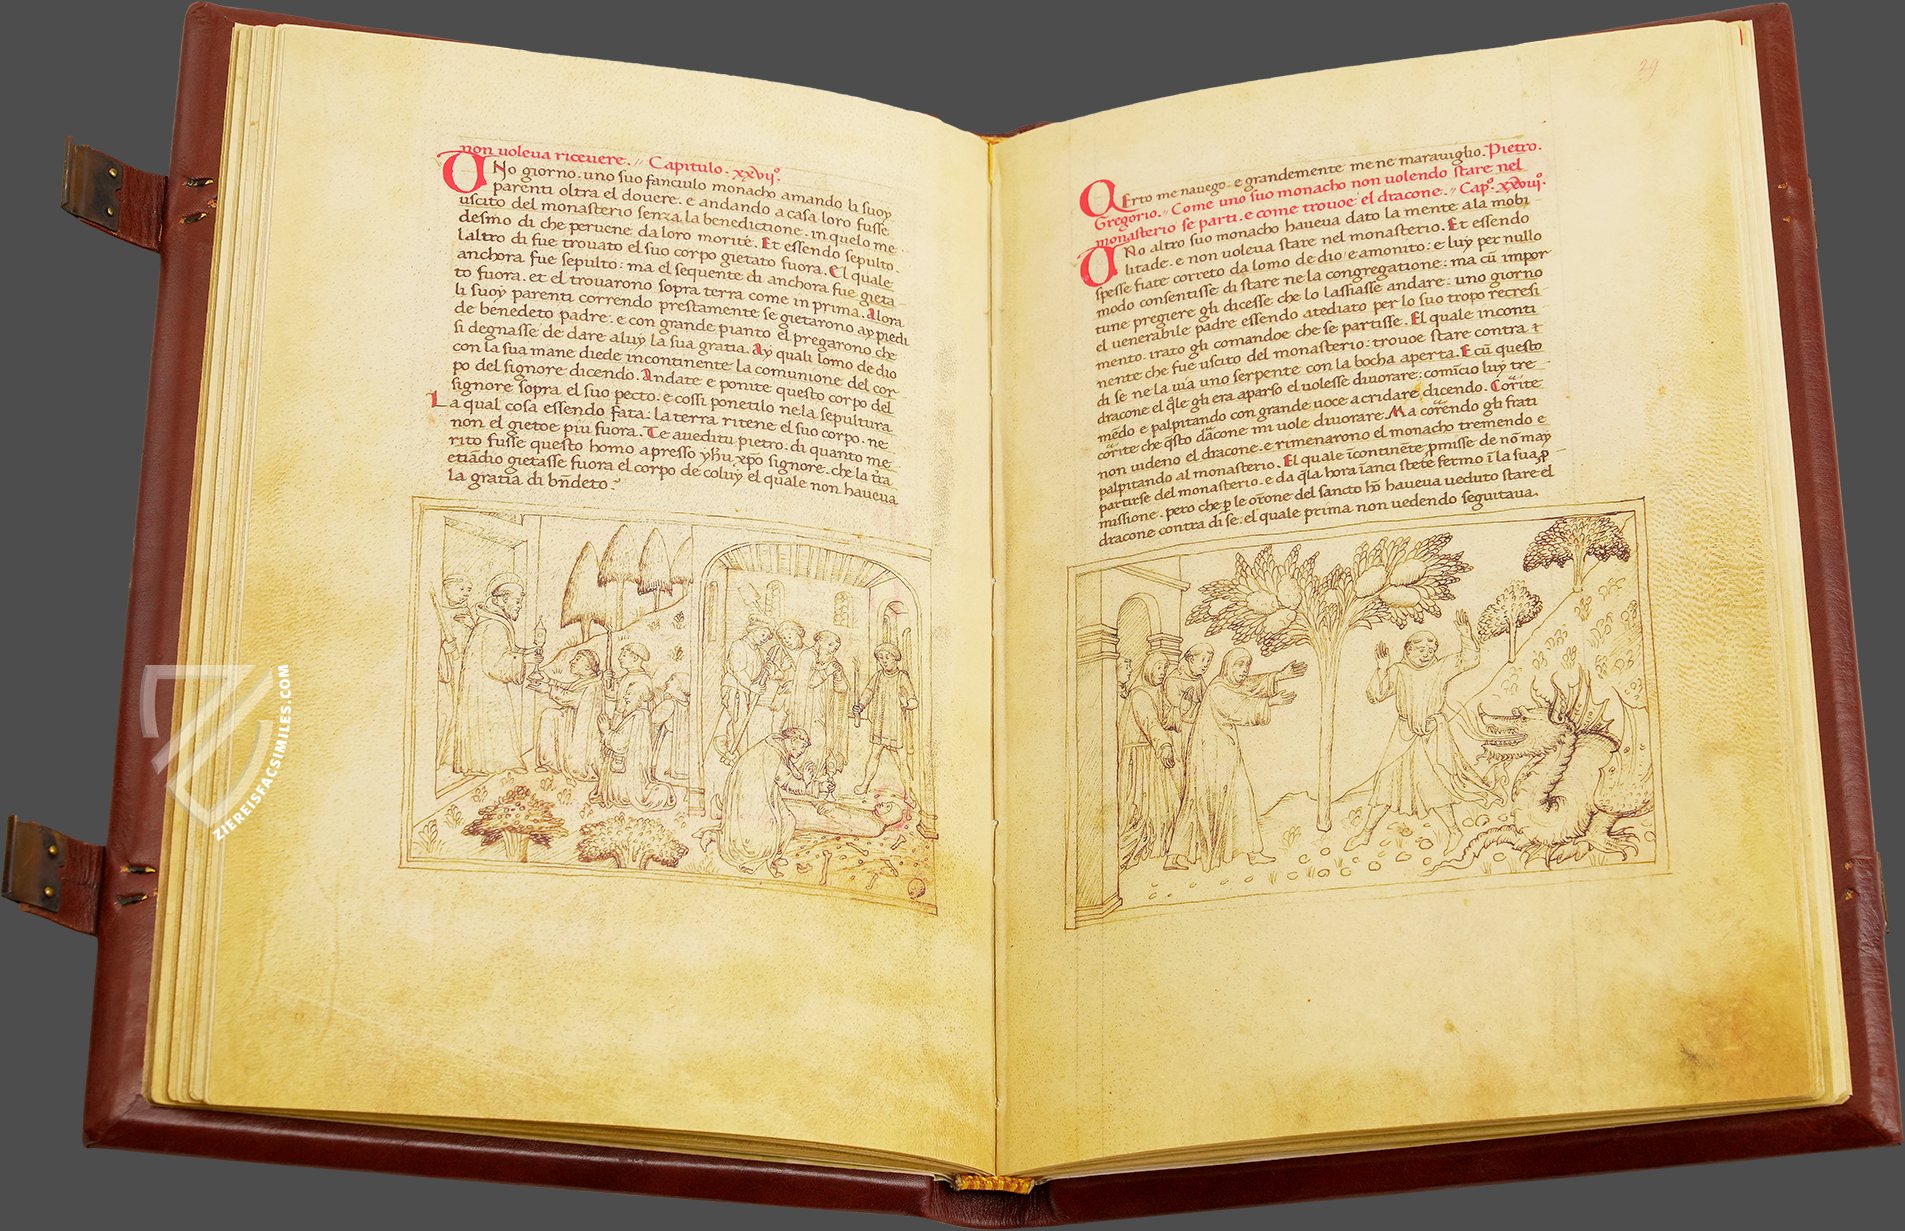 non uoleua riceuere. // Capitulo. xxvijº.
UNo giorno. uno suo fanciulo monacho amando li suoy
parenti oltra el douere. e andando a casa loro fusse
uscito del monasterio senza la benedictione. in quelo me
desmo di che peruene da loro morite. Et essendo sepulto.
laltro di fue trouato el suo corpo gietato fuora. El quale
anchora fue sepulto: ma el sequente di anchora fue gieta
to fuora. et el trouarono sopra terra come in prima. Alora
li suoy parenti correndo prestamente se gietarono ay piedi
de benedeto padre. e con grande pianto el pregarono che
si degnasse de dare aluy la sua gratia. Ay quali lomo de dio
con la sua mane diede incontinente la comunione del cor
po del signore dicendo. Andate e ponite questo corpo del
signore sopra el suo pecto. e cossi ponetilo ne la sepultura
La qual cosa essendo fata: la terra ritene el suo corpo. ne
non el gietoe piu fuora. Te aueditu pietro. di quanto me
rito fusse questo homo apresso yhu xpo signore. che la tra
etiadio gietasse fuora el corpo de coluy el quale non haueua
la gratia di bndeto.
29
CErto me naueg̣o. e grandemente me ne marauiglio. Pietro.
Gregorio. // Come uno suo monacho non uolendo stare nel
monasterio se parti. e come trouoe el dracone. // Capº. xxviijº.
UNo altro suo monacho haueua dato la mente ala mobi
litade. e non uoleua stare nel monasterio. Et essendo
spesse fiate correto da lomo de dio e amonito: e luy per nullo
modo consentisse di stare ne la congregatione: ma cū impor
tune pregiere gli dicesse che lo lassiasse andare: uno giorno
el uenerabile padre essendo atediato per lo suo tropo recresi
mento. irato gli comandoe che se partisse. El quale inconti
nente che fue uscito del monasterio: trouoe stare contra
di se ne la uia uno serpente con la bocha aperta. E cū questo
dracone el qle gli era aparso el uolesse diuorare: comicio luy tre
mēdo e palpitando con grande uoce a cridare dicendo. Corite
corite che qsto dacone mi uole diuorare. Ma corendo gli frati
non uideno el dracone. e rimenarono el monacho tremendo e
palpitando al monasterio. El quale īcontinēte pmisse de nō may
partirse del monasterio. e da qla hora īanci stete fermo ī la sua p
missione. pero che p le orone del sancto hō haueua ueduto stare el
dracone contra di se. el quale prima non uedendo seguitaua.
ZIEREISFACSIMILES.COM